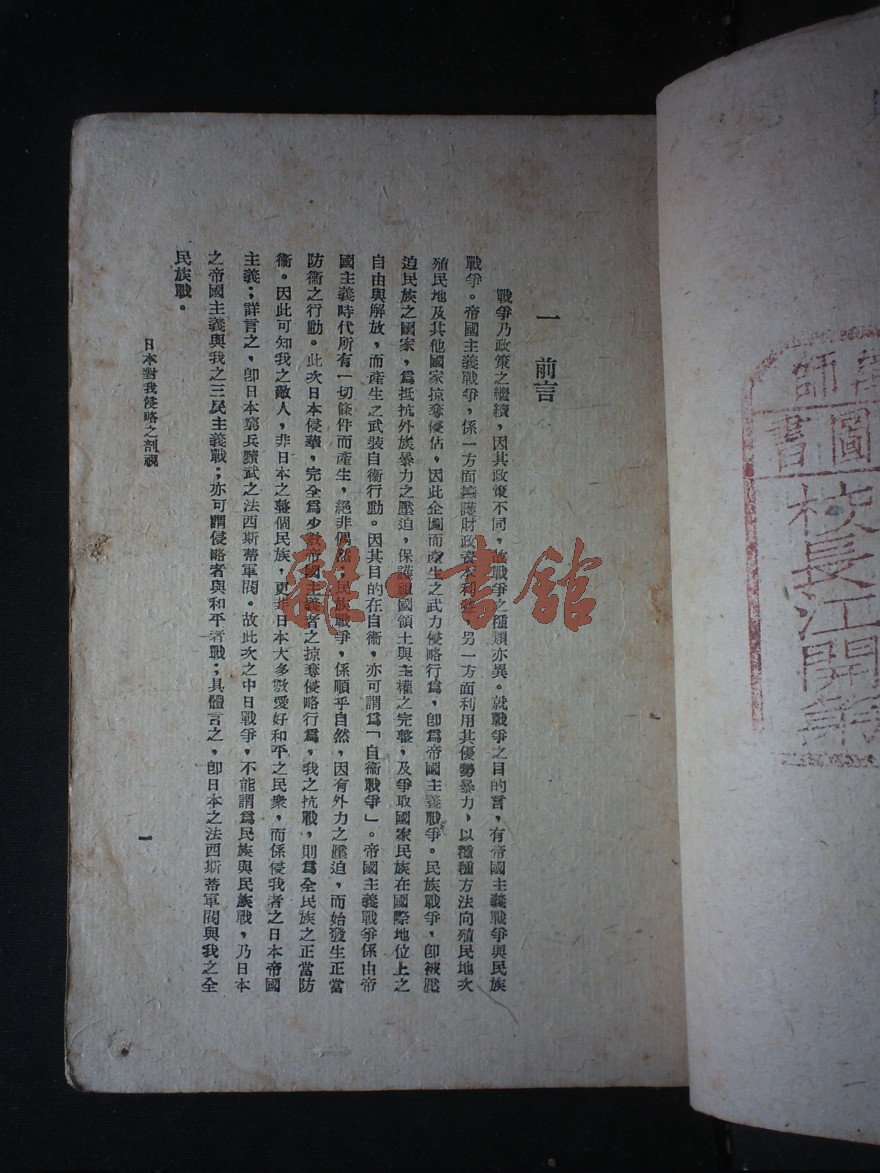 一　前言
戰爭乃政策之繼續，因其政策不同，故戰爭之種類亦異。就戰爭之目的言，有帝國主義戰爭與民族
戰爭。帝國主義戰爭，係一方面擁護財政資本利益，另一方面利用其優勢暴力，以種種方法向殖民地次
殖民地及其他國家掠奪侵佔，因此企圖而產生之武力侵略行爲，卽爲帝國主義戰爭。民族戰爭，卽被壓
迫民族之國家，爲抵抗外族暴力之壓迫，保護祖國領土與主權之完整，及爭取國家民族在國際地位上之
自由與解放，而產生之武裝自衞行動。因其目的在自衞，亦可謂爲「自衞戰爭」。帝國主義戰爭係由帝
國主義時代所有一切條件而產生，絕非偶然；民族戰爭，係順乎自然，因有外力之壓迫，而始發生正當
防衞之行動。此次日本侵華，完全爲少數帝國主義者之掠奪侵略行爲，我之抗戰，則爲全民族之正當防
衞。因此可知我之敵人，非日本之整個民族，更非日本大多數愛好和平之民衆，而係侵我者之日本帝國
主義；詳言之，卽日本窮兵黷武之法西斯蒂軍閥。故此次之中日戰爭，不能謂爲民族與民族戰，乃日本
之帝國主義與我之三民主義戰；亦可謂侵略者與和平者戰；具體言之，卽日本之法西斯蒂軍閥與我之全
民族戰。
日本對我侵略之剖視
一
龍一書館
師
圖
書
校長江開